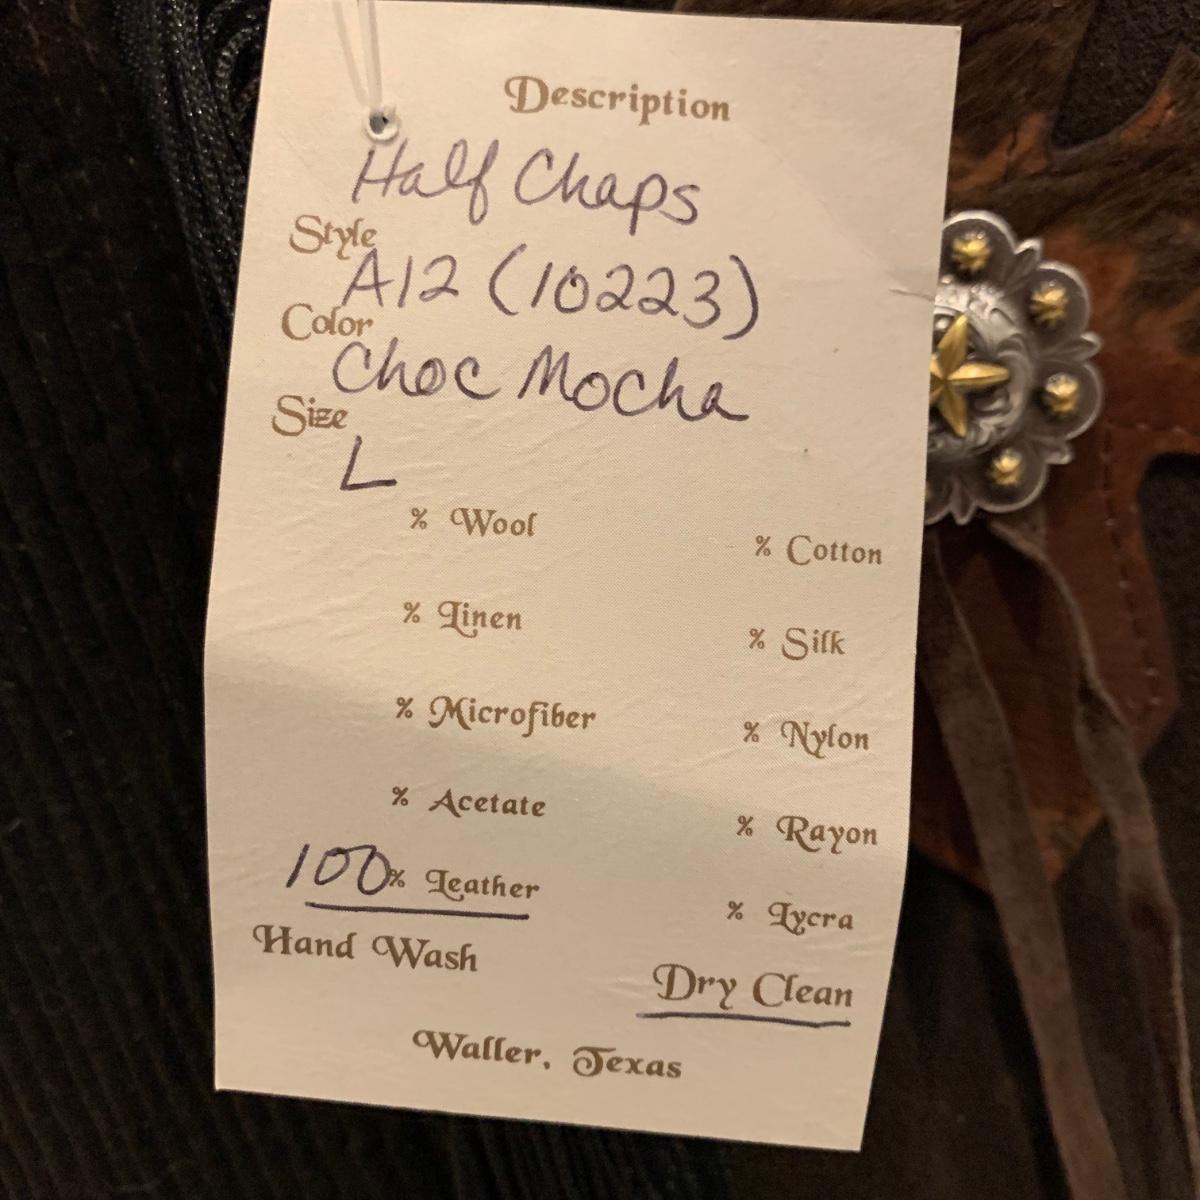 Description
Half Chaps
Style
A12 (10223)
Color
Choc Mocha
Size
L
% Wool % Cotton
% Linen % Silk
% Microfiber % Nylon
% Acetate % Rayon
100% Leather % Lycra
Hand Wash Dry Clean
Waller, Texas